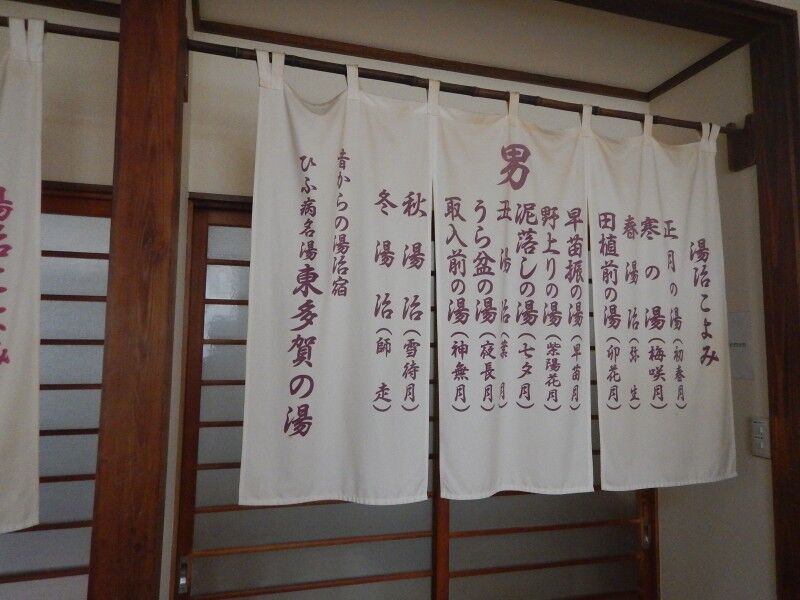 湯治こよみ
正月の湯(初春月)
寒の湯(梅咲月)
春湯治(弥生)
田植前の湯(卯花月)
男
早苗振の湯(早苗月)
野上りの湯(紫陽花月)
泥落しの湯(七夕月)
丑湯治(葉月)
うら盆の湯(夜長月)
取入前の湯(神無月)
秋湯治(雪待月)
冬湯治(師走)
昔からの湯治宿
ひふ病名湯 東多賀の湯
湯治こよみ